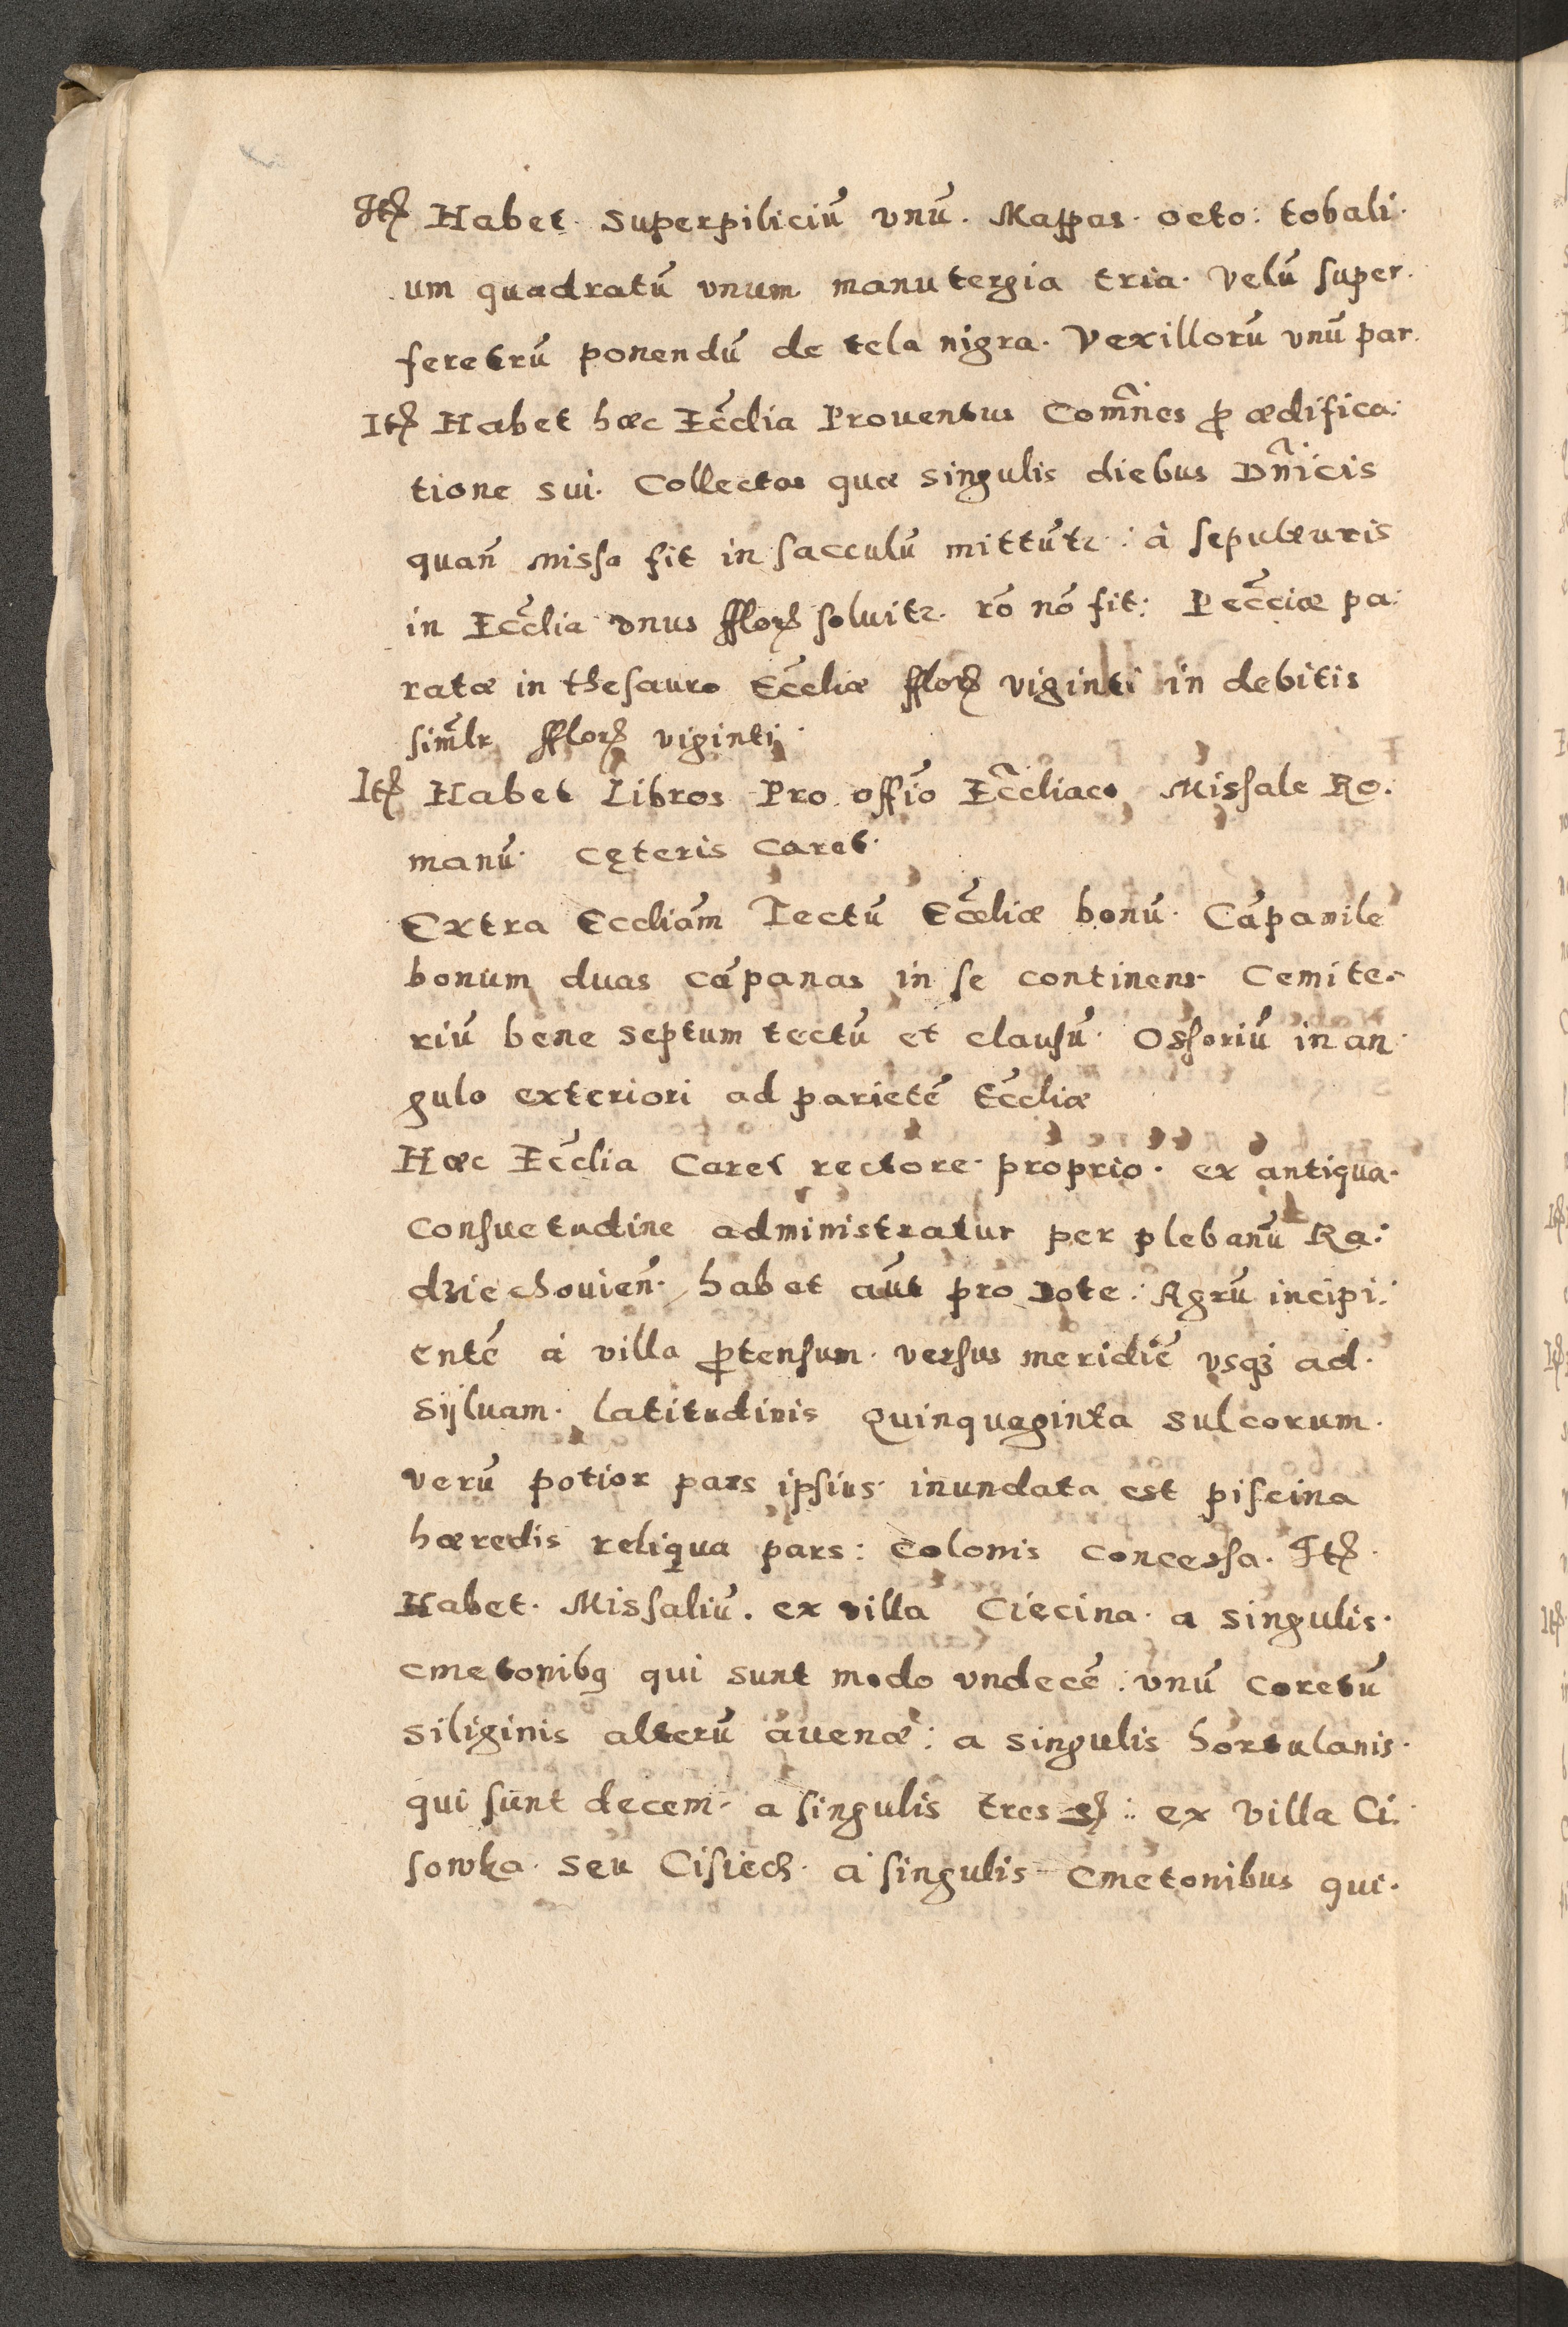 Itꝫ Habet superpiliciū vnū. Mappas. octo: tobali.
um quadratū vnum manutergia tria. Velū super.
feretrū ponendū de tela nigra. Vexillorū vnū par.
Itꝫ Habet hæc Eccl̃ia Prouentus Com̃nes ꝓ ædifica:
tione sui. Collectas quæ singulis diebus Dn̄icis
quañ Missa fit in sacculū mittūtr: à sepulturis
in Eccl̃ia vnus fflorꝫ soluitr. rō nō fit: Pecc̃iæ pa:
ratæ in thesauro Eccl̃iæ fflorꝫ viginti in debitis
sim̃lr fflorꝫ viginti.
Itꝫ Habet Libros Pro offio̅ Eccl̃iaco Missale Ro:
manū. cęteris caret.
Extra Eccliãm Tectū Eccl̃iæ bonū. Cāpanile
bonum duas cāpanas in se continens. Cemite-
riū bene septum tectū et clausū. Ossoriū in an.
gulo exteriori ad parietē Eccl̃iæ
Hæc Eccl̃ia Caret rectore. proprio. ex antiqua.
consuetudine administratur per plebanū Ra:
dziechouien̄. habet aūt pro Dote: Agrū incipi:
entē à villa ꝓtensum. versus meridiē vsqꝫ ad.
sÿluam. latitudinis Quinquaginta sulcorum.
verū potior pars ipsius. inundata est piscina
hæredis reliqua pars: colonis concessa. Itꝫ.
Habet. Missaliū. ex villa Ciecina. a singulis.
cmetonibꝫ qui sunt modo vndecē: vnū coretū
siliginis alterū auenæ: a singulis hortulanis.
qui sunt decem. a singulis tres : ex villa Ci:
sowka. seu Cisiech. a singulis Cmetonibus qui.